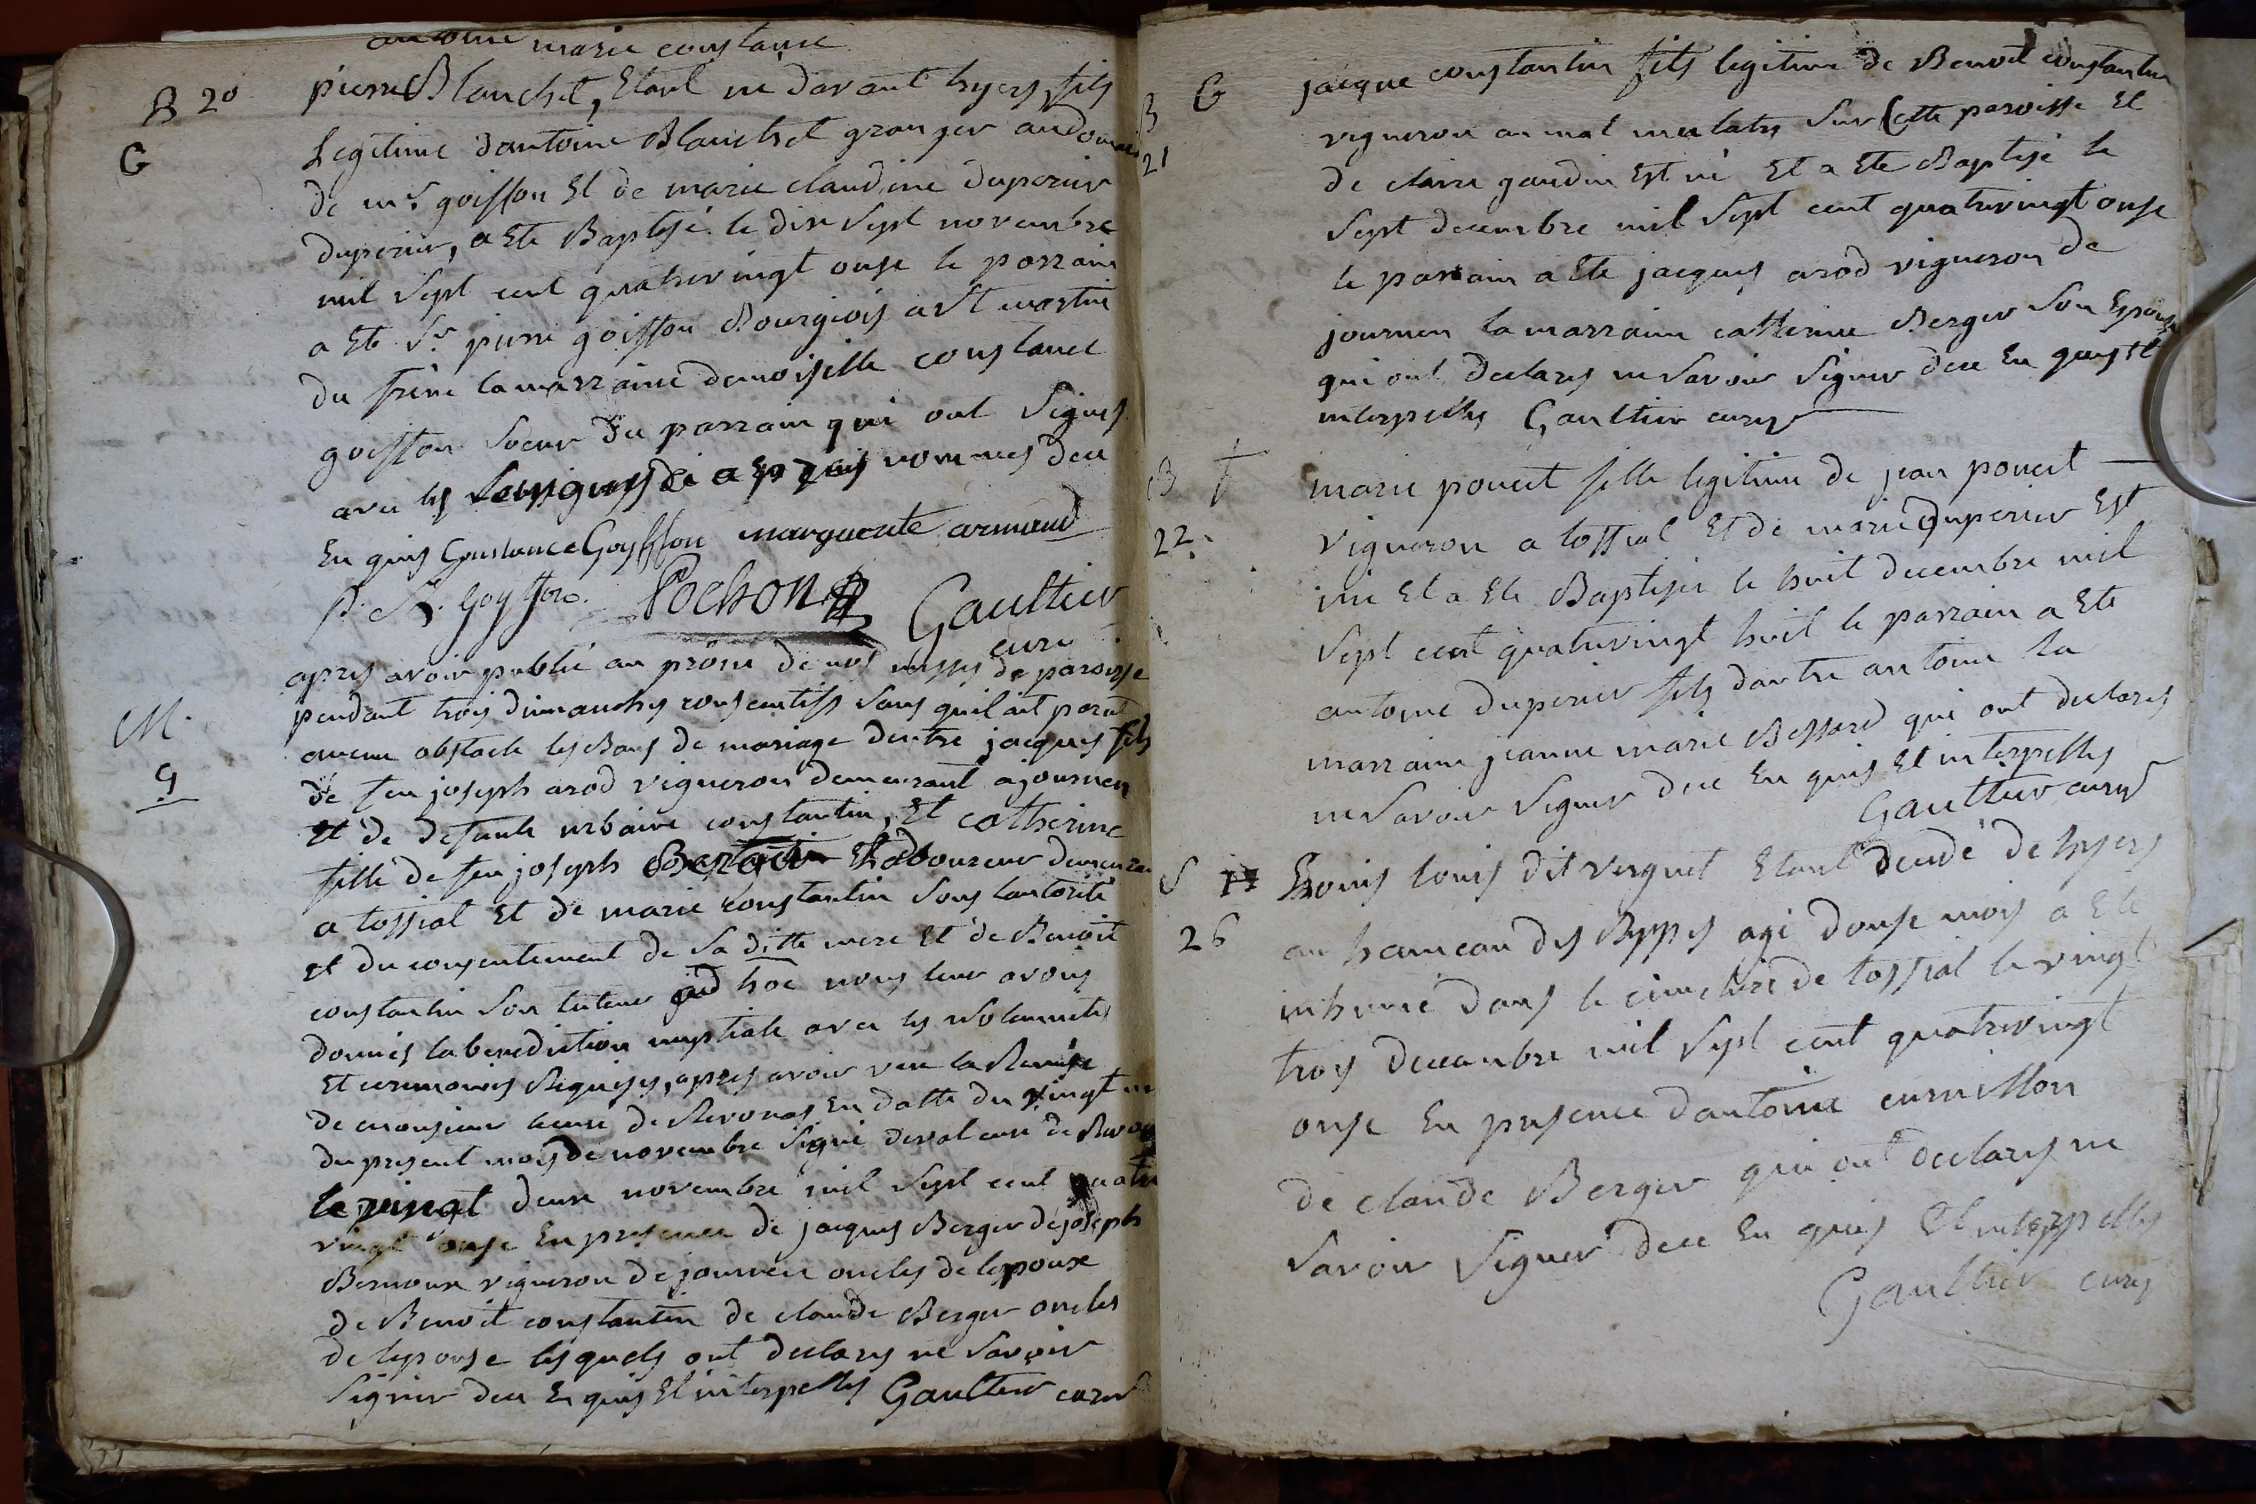 antoine marie constance
B 20 pierre Blanchet, Etant né davant hyers, fils
G Legitime dantoine Blanchet granger au domaine
de mr. goiffon Et de marie claudine duperier
duperier, a Ete Baptisé le dix Sept novembre
mil Sept cent quatrevingt onse le parrain
a Ete Sr. pierre goiffon Bourgeois a St martin
du frene la marraine demoiselle constance
goiffon Soeur du parrain qui ont Signes
avec les Soussignes de a Enquis nommes dece
En quis Constance Goyffon marguerite armand
P. A. Goyffon. Pochon Gaultier
curé
apres avoir publié au prône de nos messes de paroisse
M. pendant trois dimanches consecutifs sans quil ait paru
9 aucun obstacle les Bans de mariage dentre jacques fils
de feu joseph arod vigneron demeurant a journen
et de defunte urbaine constantin, Et catherine
fille de feu joseph Berger Laboureur demeurant
a tossiat Et de marie constantin Sous lautorité
et du consentement de Sa ditte mere Et de Benoit
constantin Son tuteur ad hoc nous leur avons
donnés la benediction nuptiale avec les Solemnités
Et ceremonies Requises, apres avoir veu la Remise
de monsieur le curé de Revonas En datte du vingt un
du present mois de novembre Signé deval curé de Revonas
le vingt deux novembre mil Sept cent quatre
vingt onse En presence de jacques Berger de joseph
Bernoux vigneron de journen oncles de lepoux
de Benoit constantin de claude Berger oncles
de lepouse lesquels ont declares ne Savoir
Signer dece Enquis Et interpelles Gaultier curé
B G jacque constantin fils legitime de Benoit constantin
21 vigneron au mol mulatys Sur Cette paroisse Et
de claire gaudin Est né Et a Ete Baptisé le
Sept decembre mil Sept cent quatrevingt onse
le parrain a Ete jacques arod vigneron de
journen la marraine catherine Berger Son Epouse
qui ont declares ne Savoir Signer dece En quis Et
interpelles Gaultier curé
B f marie poncet fille legitime de jean poncet
22. vigneron a tossiat Et de marie duperier Est
née Et a Ete Baptisée le huit decembre mil
Sept cent quatrevingt huit le parrain a Ete
antoine duperier fils dautre antoine la
marraine jeanne marie Bessard qui ont declares
ne Savoir Signer dece En quis Et interpelles
Gaultier curé
S louis dit verguet Etant decedé de hyers
26 au hameau des Rippes agé donse mois a Ete
inhumé dans le cimetiere de tossiat le vingt
trois decembre mil Sept cent quatrevingt
onse En presence dantoine curnillon
de claude Berger qui ont declares ne
Savoir Signer dece En quis Et interpelles
Gaultier curé